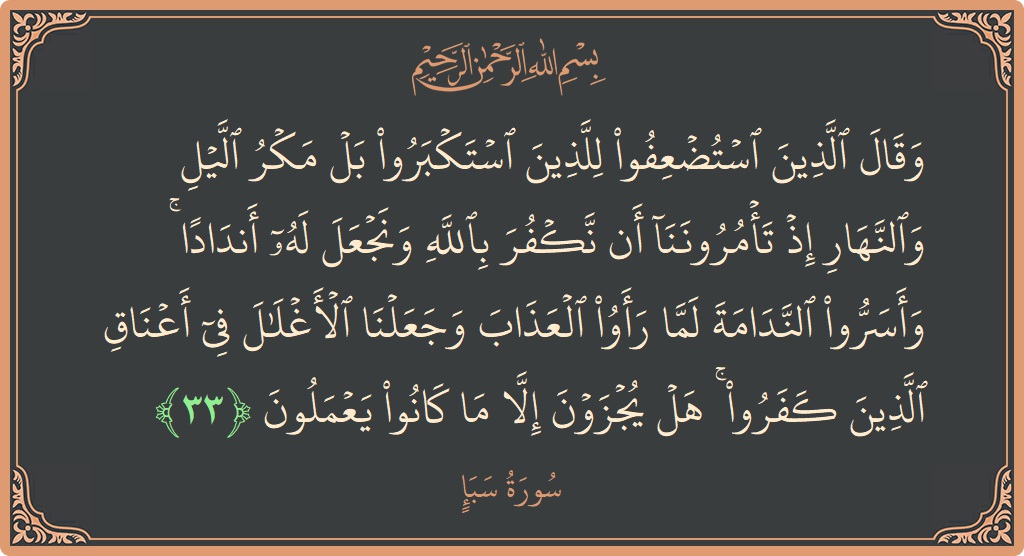 بِسْمِ اللَّهِ الرَّحْمَٰنِ الرَّحِيمِ
وَقَالَ ٱلَّذِينَ ٱسْتُضْعِفُوا۟ لِلَّذِينَ ٱسْتَكْبَرُوا۟ بَلْ مَكْرُ ٱلَّيْلِ
وَٱلنَّهَارِ إِذْ تَأْمُرُونَنَآ أَن نَّكْفُرَ بِٱللَّهِ وَنَجْعَلَ لَهُۥٓ أَندَادًا ۚ
وَأَسَرُّوا۟ ٱلنَّدَامَةَ لَمَّا رَأَوُا۟ ٱلْعَذَابَ وَجَعَلْنَا ٱلْأَغْلَٰلَ فِىٓ أَعْنَاقِ
ٱلَّذِينَ كَفَرُوا۟ ۚ هَلْ يُجْزَوْنَ إِلَّا مَا كَانُوا۟ يَعْمَلُونَ ﴿٣٣﴾
سُورَةُ سَبَإٍ